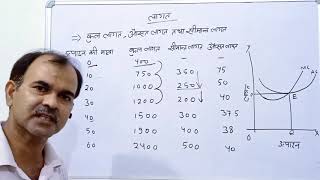 लागत
⇒ कुल लागत, औसत लागत तथा सीमान्त लागत
उत्पादन की मात्रा कुल लागत सीमान्त लागत औसत लागत
0 400 - -
10 750 350 75
20 1000 250↓ 50
30 1200 200↓ 40
40 1500 300 37.5
50 1900 400 38
60 2400 500 40
Y
MC
AC
E
X
उत्पादन